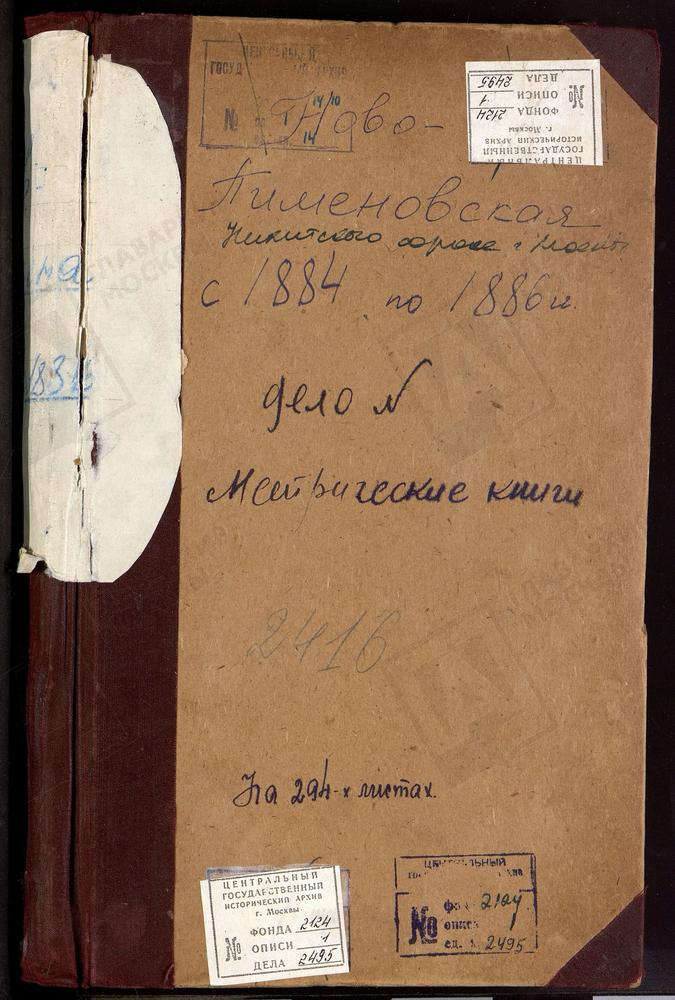 ГОСУД
№
14/10
1
14
Ново-
Пименовская
Никитского сорока г. Москвы
с 1884 по 1886 г.
дело №
Метрические книги
2416
На 294-х листах.
ЦЕНТРАЛЬНЫЙ
ГОСУДАРСТВЕННЫЙ
ИСТОРИЧЕСКИЙ АРХИВ
г. Москвы
№ ФОНДА 2124
ОПИСИ 1
ДЕЛА 2495
ЦЕНТРАЛЬНЫЙ
ГОСУДАРСТВЕННЫЙ
ИСТОРИЧЕСКИЙ АРХИВ
г. Москвы
№ ФОНДА 2124
ОПИСИ 1
ДЕЛА 2495
№
2124
1
ед. 2495